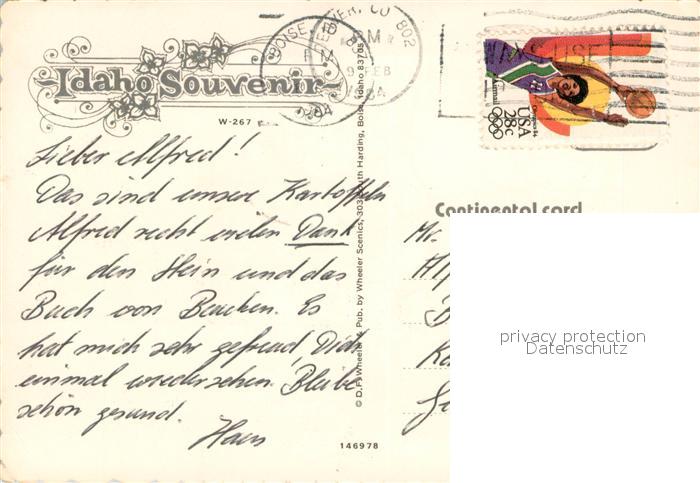 Idaho Souvenir
W-267
BOISE, ID
PM
9 FEB
1984
CO 802
Olympics 84
USA
28c
Airmail
Lieber Alfred!
Das sind unsere Kartoffeln
Alfred recht vielen Dank
für den Stein und das
Buch von Ba
Es
hat mich sehr gefreut, Dich
einmal wiedersehen. Bleibe
schön gesund.
Hans
© D.F. Wheeler Pub. by Wheeler Scenics, 303 South Harding, Boise, Idaho 83705
146978
Continental card
Mr.
privacy protection
Datenschutz